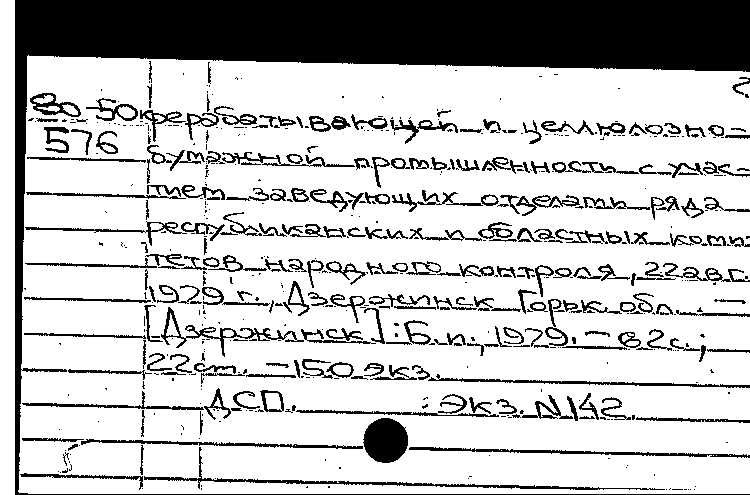 2
80-50к
576
рерабатывающей и целлюлозно-
бумажной промышленность с учас-
тием заведующих отделами ряда
республиканских и областных коми-
тетов народного контроля, 22 авг.
1979 г., Дзержинск Горьк. обл. . —
[Дзержинск] : Б.и., 1979. — 62 с.;
22 см. — 150 экз.
ДСП. : Экз. N 142.